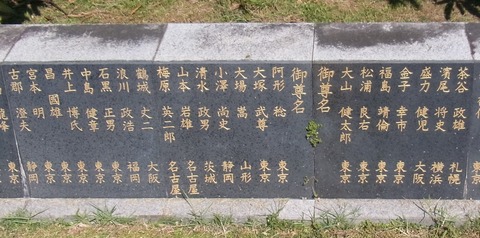 茶谷 政雄 札幌
濱尾 将史 横浜
盛力 健児 大阪
金子 幸市 東京
福島 靖倫 東京
松浦 良右 東京
大山 健太郎 東京
御尊名
御尊名
阿形 稔 東京
大塚 武尊 東京
大場 嵩 山形
小澤 尚史 静岡
清水 政男 茨城
山本 岩雄 名古屋
梅原 英二郎 名古屋
鶴城 丈二 大阪
浪川 政浩 福岡
石黒 正男 東京
中島 健章 東京
井上 博氏 東京
昌 國雄 東京
宮本 明 静岡
古郡 澄夫 東京